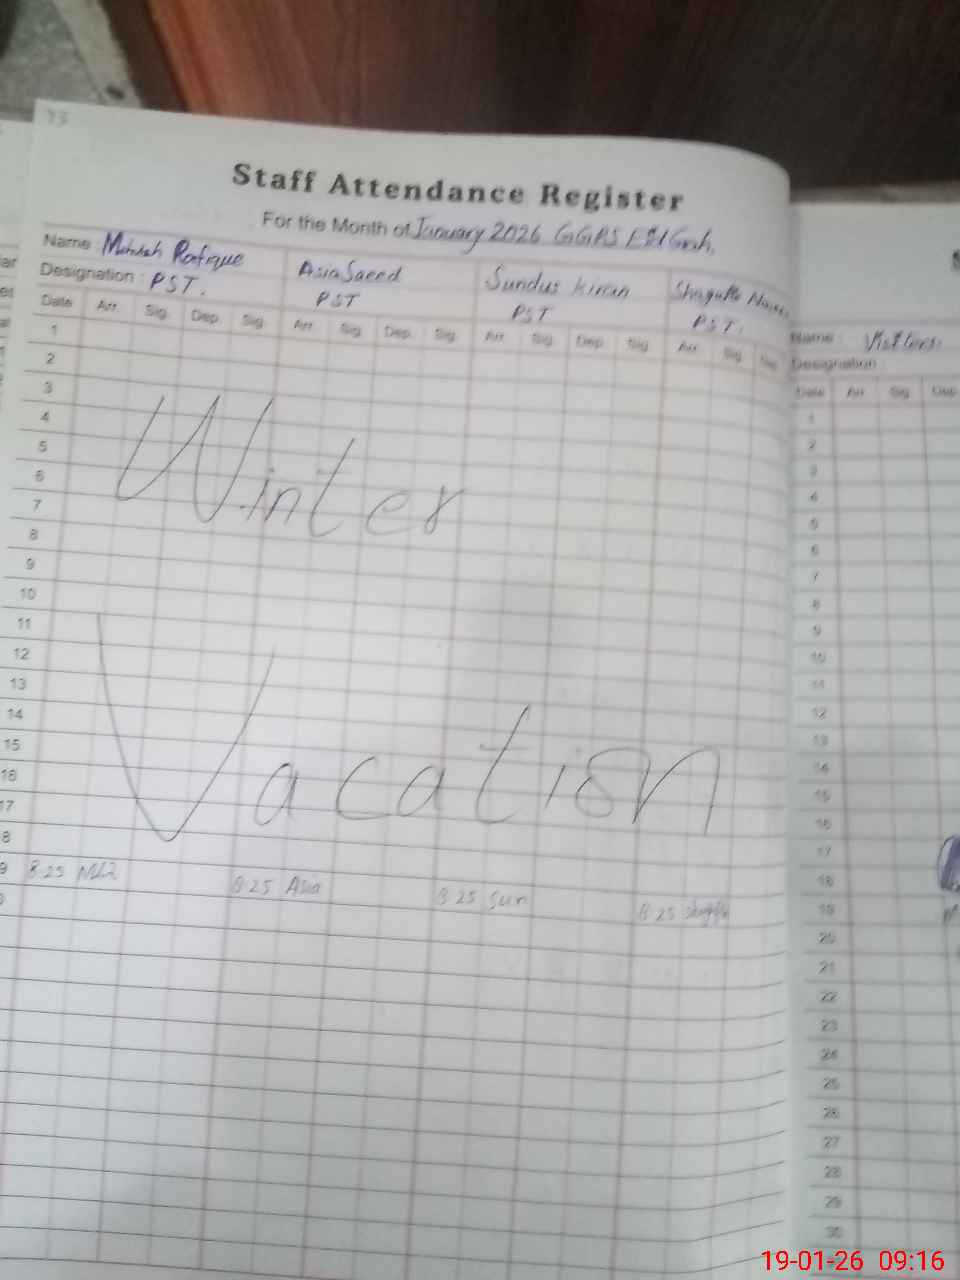 73
Staff Attendance Register
For the Month of January 2026 GGPS
Name: Rafique Asia Saeed Sundus Kiran Shagufta
Designation: PST. PST PST PST.
Date Arr. Sig. Dep. Sig. Arr. Sig. Dep. Sig. Arr. Sig. Dep. Sig. Arr. Sig.
1
2
3
4
5
6
7
8
9
10
11
12
13
14
15
16
17
8
9 8:25 8:25 Asia 8:25 Sun 8:25
Winter
Vacation
Name: Visitors
Designation:
Date Arr. Sig. Dep.
1
2
3
4
5
6
7
8
9
10
11
12
13
14
15
16
17
18
19
20
21
22
23
24
25
26
27
28
29
30
19-01-26 09:16